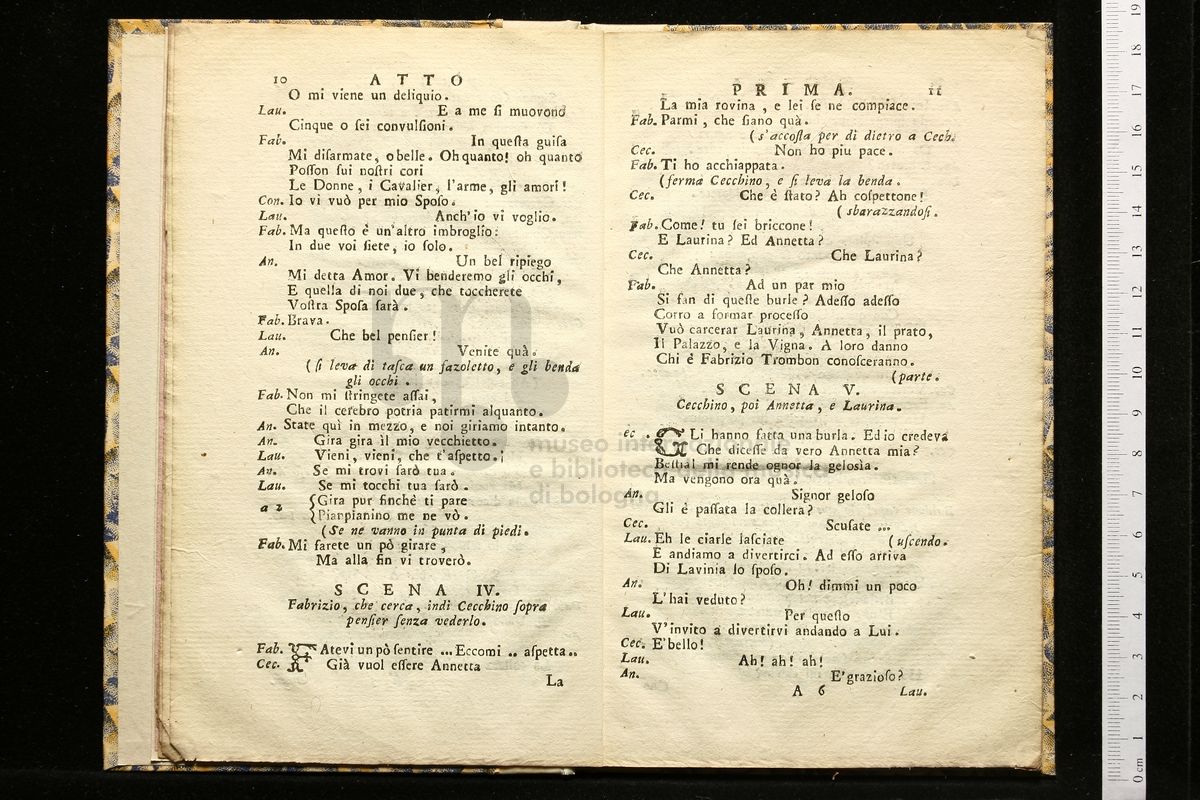 10 ATTO
O mi viene un deliquio.
Lau. E a me ſi muovono
Cinque o ſei convulſioni.
Fab. In queſta guiſa
Mi diſarmate, o belle. Oh quanto! oh quanto
Poſſon ſui noſtri cori
Le Donne, i Cavalier, l'arme, gli amori!
Con. Io vi vuò per mio Spoſo.
Lau. Anch'io vi voglio.
Fab. Ma queſto è un'altro imbroglio:
In due voi ſiete, io ſolo.
An. Un bel ripiego
Mi detta Amor. Vi benderemo gli occhi,
E quella di noi due, che toccherete
Voſtra Spoſa ſarà.
Fab. Brava.
Lau. Che bel penſier!
An. Venite quà.
(ſi leva di taſca un fazoletto, e gli benda
gli occhi.
Fab. Non mi ſtringete aſſai,
Che il cerebro potria patirmi alquanto.
An. State quì in mezzo, e noi giriamo intanto.
An. Gira gira il mio vecchietto.
Lau. Vieni, vieni, che t'aſpetto.
An. Se mi trovi ſarò tua.
Lau. Se mi tocchi tua ſarò.
a 2 {Gira pur finchè ti pare
{Pianpianino me ne vò.
(Se ne vanno in punta di piedi.
Fab. Mi farete un pò girare,
Ma alla fin vi troverò.
SCENA IV.
Fabrizio, che cerca, indi Cecchino ſopra
penſier ſenza vederlo.
Fab. FAtevi un pò ſentire ... Eccomi .. aſpetta..
Cec. Già vuol eſſere Annetta
La
PRIMA. 11
La mia rovina, e lei ſe ne compiace.
Fab. Parmi, che ſiano quà.
(s'accoſta per di dietro a Cech.
Cec. Non ho piu pace.
Fab. Ti ho acchiappata.
(ferma Cecchino, e ſi leva la benda.
Cec. Che è ſtato? Ah coſpettone!
(sbarazzandoſi.
Fab. Come! tu ſei briccone!
E Laurina? Ed Annetta?
Cec. Che Laurina?
Che Annetta?
Fab. Ad un par mio
Si fan di queſte burle? Adeſſo adeſſo
Corro a formar proceſſo
Vuò carcerar Laurina, Annetta, il prato,
Il Palazzo, e la Vigna. A loro danno
Chi è Fabrizio Trombon conoſceranno.
(parte.
SCENA V.
Cecchino, poi Annetta, e Laurina.
ec. GLi hanno fatta una burla. Ed io credeva
Che diceſſe da vero Annetta mia?
Beſtial mi rende ognor la gelosìa.
Ma vengono ora quà.
An. Signor geloſo
Gli è paſſata la collera?
Cec. Scuſate ...
Lau. Eh le ciarle laſciate (uſcendo.
E andiamo a divertirci. Ad eſſo arriva
Di Lavinia lo ſpoſo.
An. Oh! dimmi un poco
L'hai veduto?
Lau. Per queſto
V'invito a divertirvi andando a Lui.
Cec. E' bello!
Lau. Ah! ah! ah!
An. E' grazioſo?
A 6 Lau.
museo internazionale
e biblioteca della musica
di bologna
0 cm 1 2 3 4 5 6 7 8 9 10 11 12 13 14 15 16 17 18 19